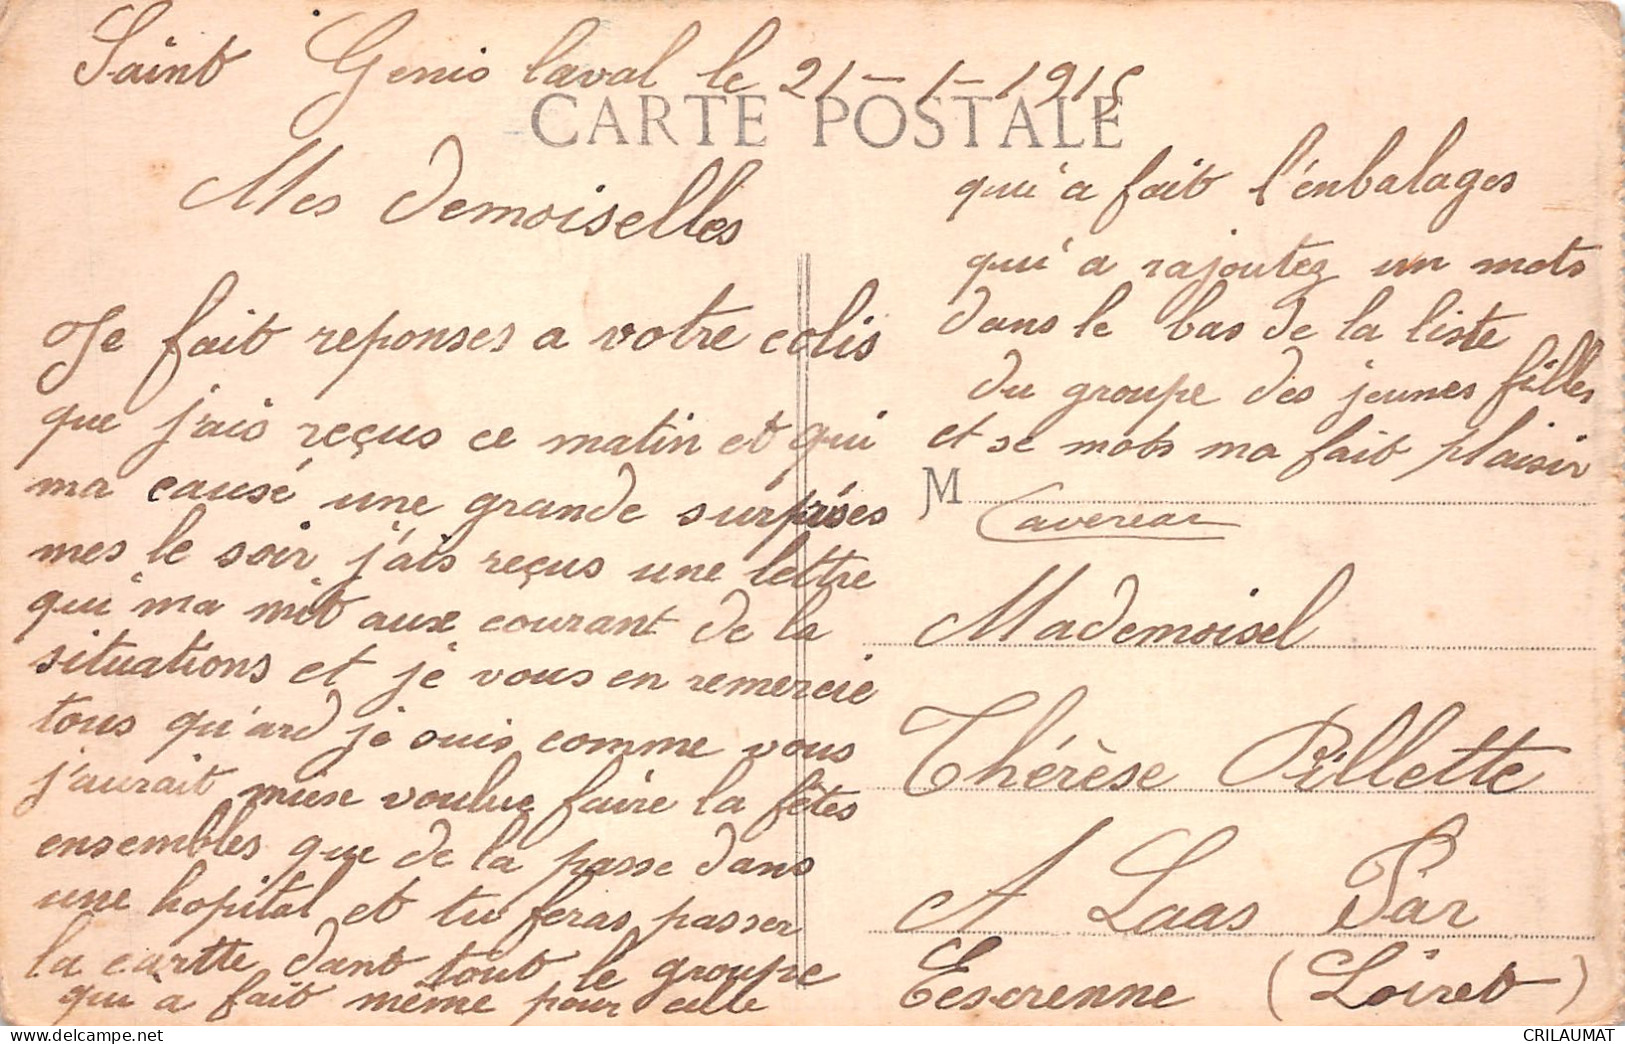 Saint Genis laval le 21-1-1915
CARTE POSTALE
Mes demoiselles
Je fait reponses a votre colis
que j'ais reçus ce matin et qui
ma causé une grande surprises
mes le soir j'ais reçus une lettre
qui ma mit aux courant de la
situations et je vous en remercie
tous qu'ard je suis comme vous
j'aurait miex voulue faire la fêtes
ensembles que de la passe dans
une hopital et tu feras passer
la cartte dant tout le groupe
qui a fait même pour celle
qui a fait l'enbalages
qui a rajoutez un mots
dans le bas de la liste
du groupe des jeunes filles
et se mots ma fait plaisir
M
Mademoisel
Thérèse Pillette
A Laas Par
Escrenne (Loiret)
CRILAUMAT